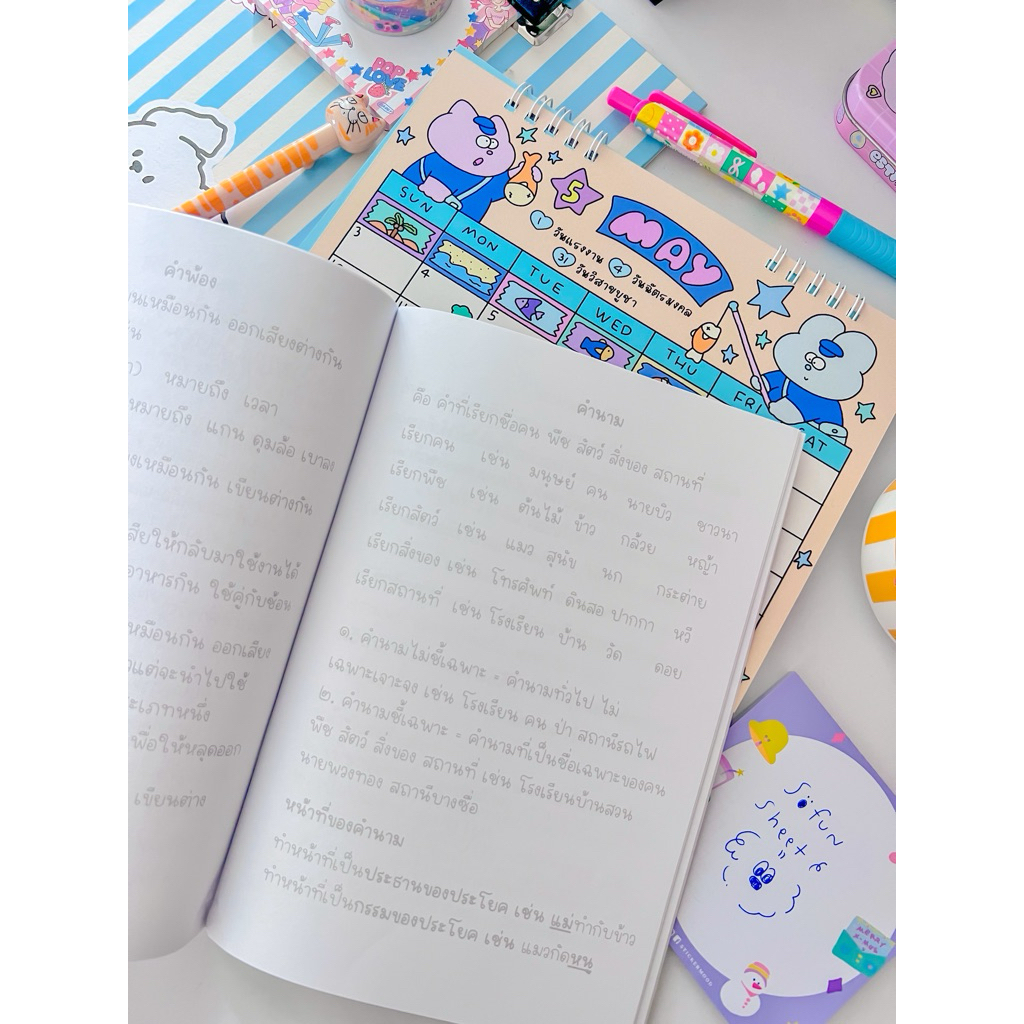 POP
LOVE
5
MAY
1 วันแรงงาน 4 วันฉัตรมงคล
31 วันวิสาขบูชา
SUN
MON
TUE
WED
THU
FRI
SAT
3
4
5
คำพ้อง
เหมือนกัน ออกเสียงต่างกัน
หมายถึง เวลา
หมายถึง แกน ดุมล้อ เบาลง
เหมือนกัน เขียนต่างกัน
ให้กลับมาใช้งานได้
อาหารกิน ใช้คู่กับช้อน
เหมือนกัน ออกเสียง
แต่จะนำไปใช้
ประเภทหนึ่ง
เพื่อให้หลุดออก
เขียนต่าง
คำนาม
คือ คำที่เรียกชื่อคน พืช สัตว์ สิ่งของ สถานที่
เรียกคน เช่น มนุษย์ คน นายบิว ชาวนา
เรียกพืช เช่น ต้นไม้ ข้าว กล้วย หญ้า
เรียกสัตว์ เช่น แมว สุนัข นก กระต่าย
เรียกสิ่งของ เช่น โทรศัพท์ ดินสอ ปากกา หวี
เรียกสถานที่ เช่น โรงเรียน บ้าน วัด ดอย
๑. คำนามไม่ชี้เฉพาะ = คำนามทั่วไป ไม่
เฉพาะเจาะจง เช่น โรงเรียน คน ป่า สถานีรถไฟ
๒. คำนามชี้เฉพาะ = คำนามที่เป็นชื่อเฉพาะของคน
พืช สัตว์ สิ่งของ สถานที่ เช่น โรงเรียนบ้านสวน
นายพวงทอง สถานีบางซื่อ
หน้าที่ของคำนาม
ทำหน้าที่เป็นประธานของประโยค เช่น แม่ทำกับข้าว
ทำหน้าที่เป็นกรรมของประโยค เช่น แมวกัดหนู
Söfun
sheet
MERRY
XIMOS
STICKAMOOD